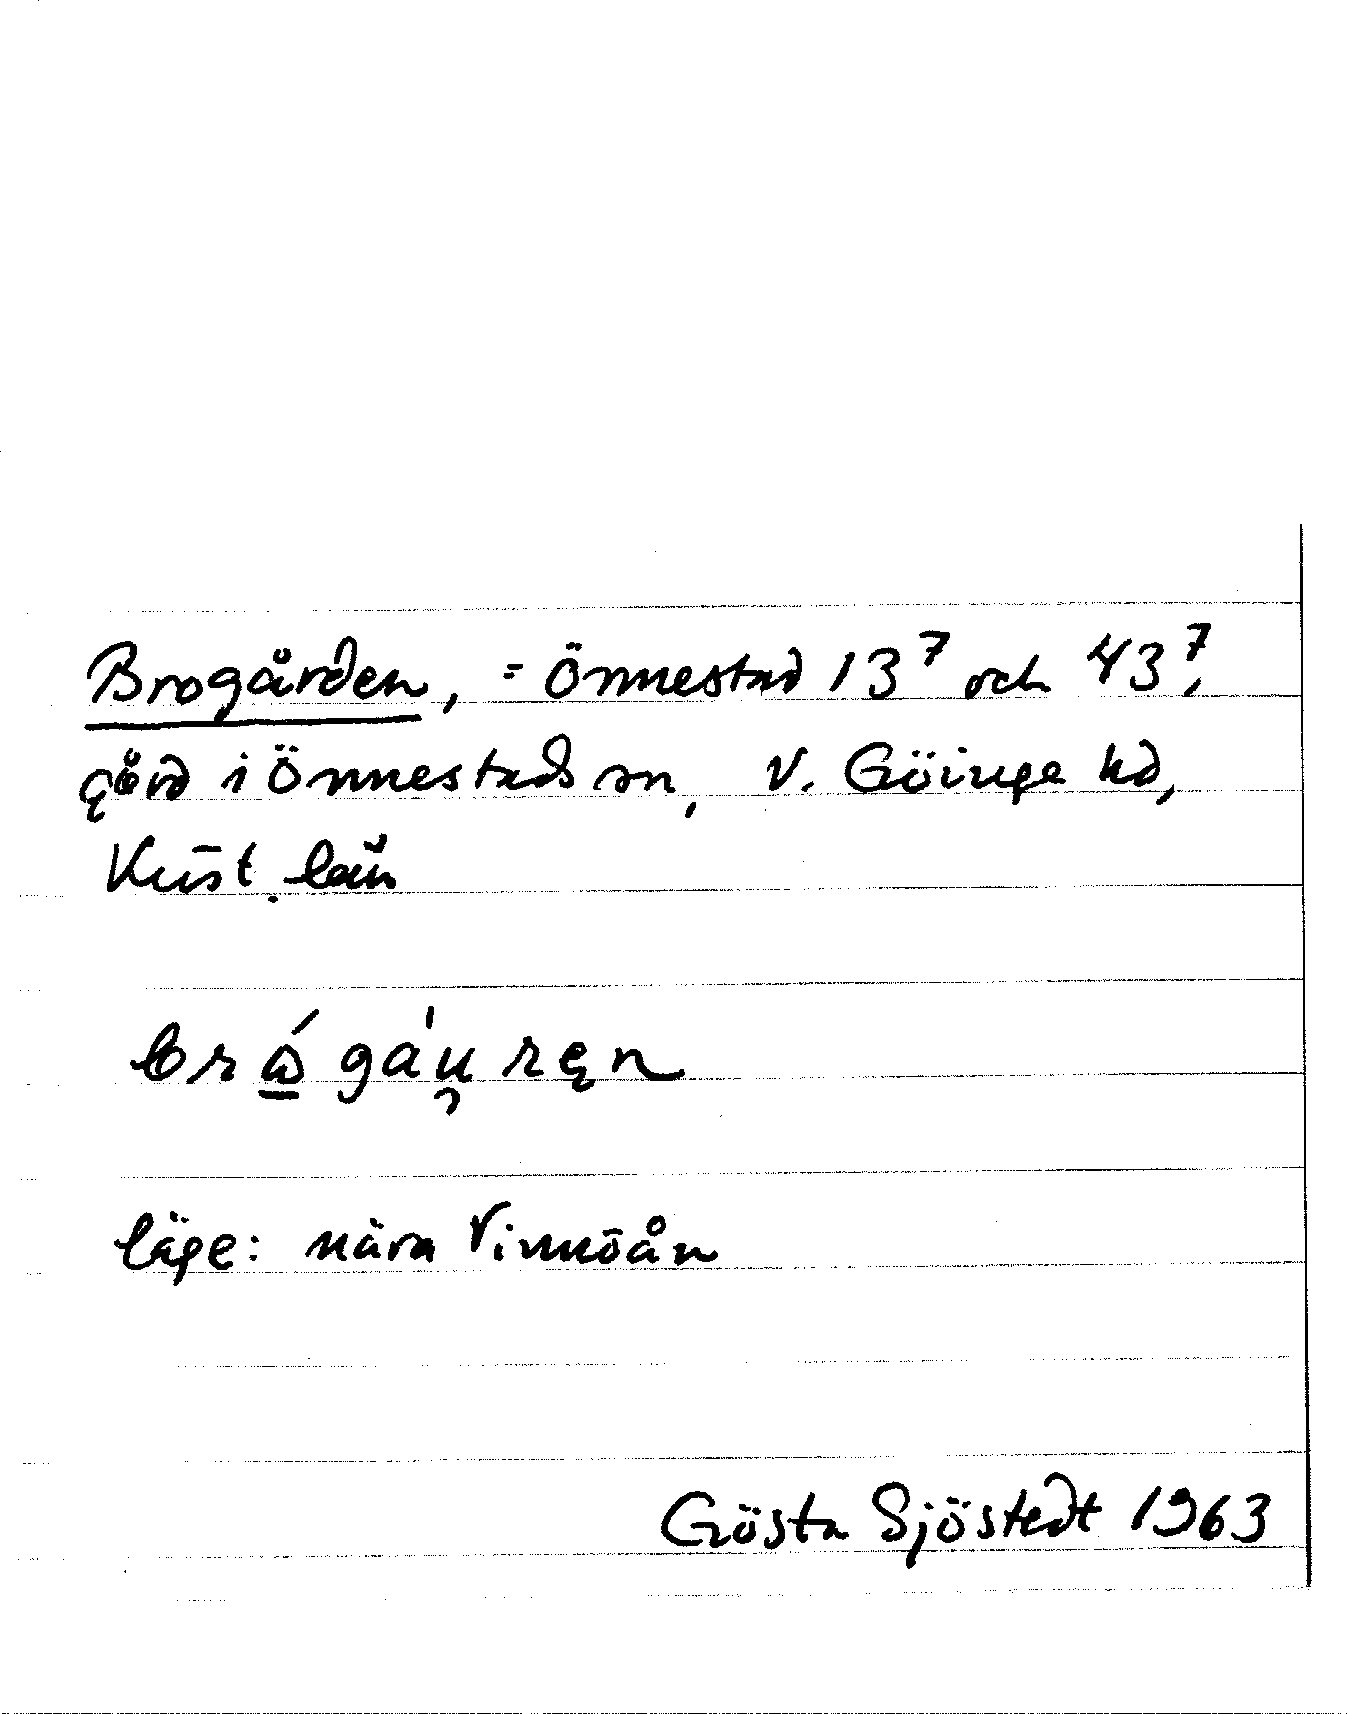 Brogården, = Önnestad 13⁷ och 43⁷,
gård i Önnestads sn, V. Göinge hd,
Krist. län
brǻ̲ga̍u̯ren
läge: nära Vinnöån
Gösta Sjöstedt 1963